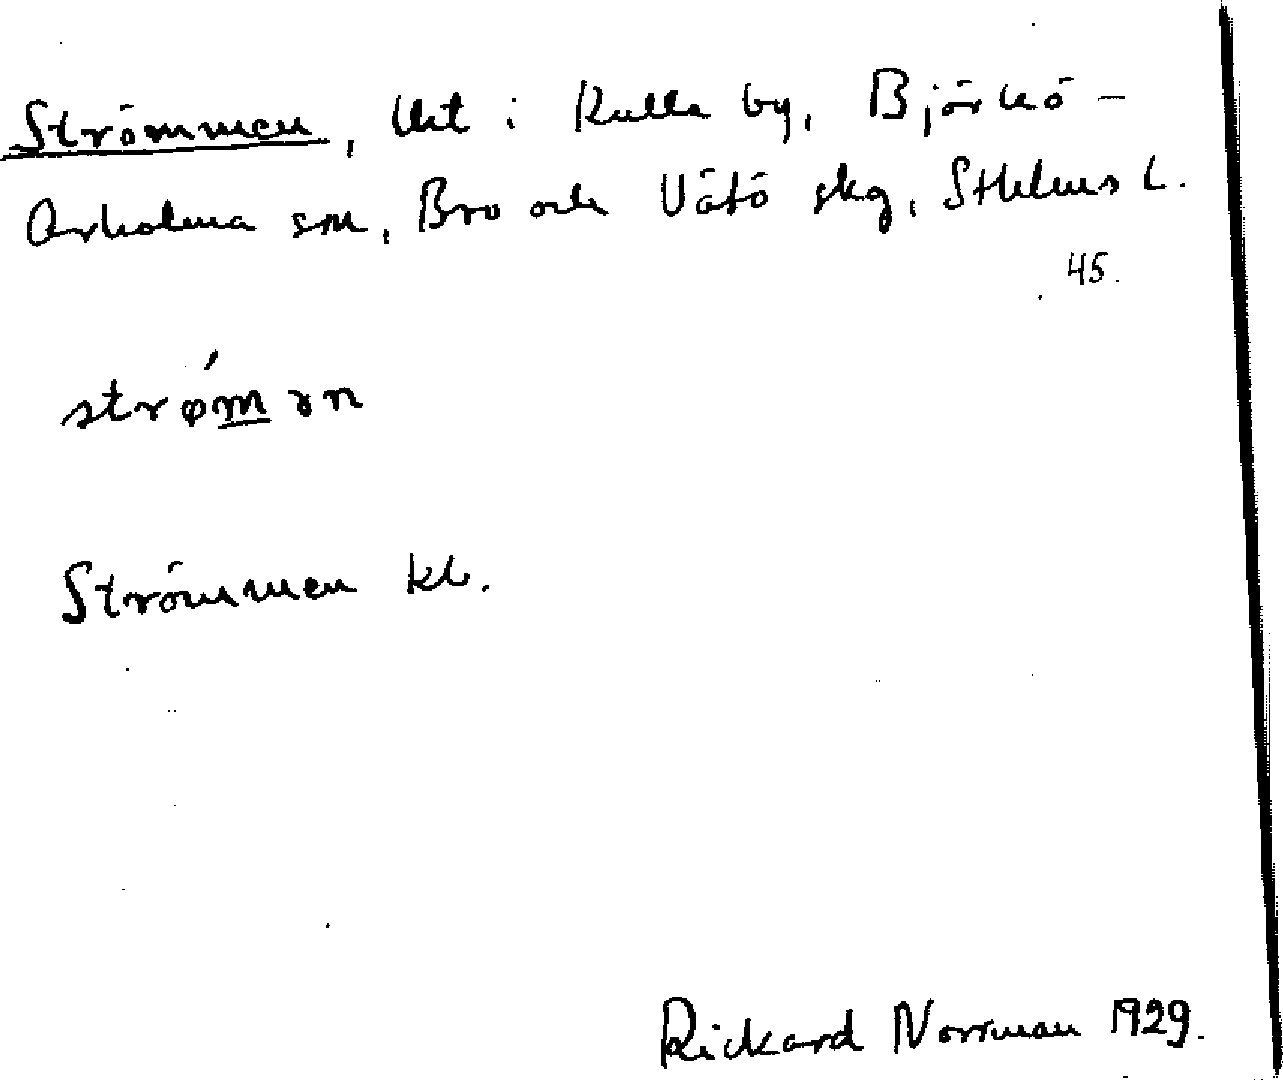 Strömmen, lht i Kulla by, Björkö-
Arholma sn, Bro och Vätö skg, Sthlms l.
45.
strǿmən
Strömmen kb.
Rickard Norrman 1929.